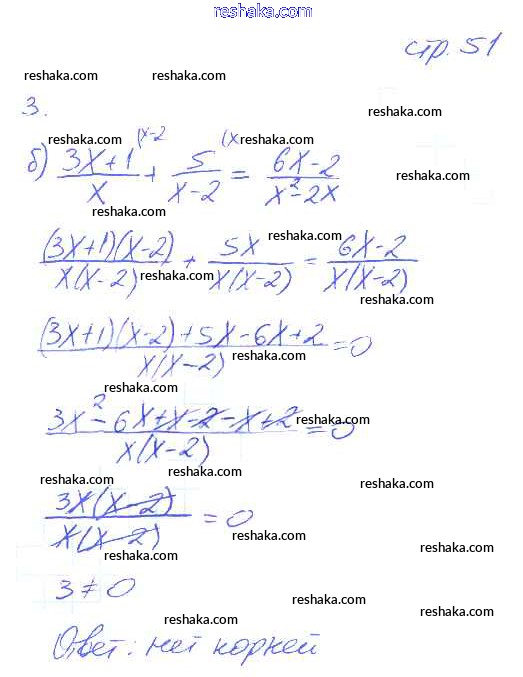 reshaka.com
стр. 51
reshaka.com reshaka.com reshaka.com
3.
reshaka.com reshaka.com
б) (3x+1)/x (x-2 + 5/(x-2) (x = (6x-2)/(x²-2x)
reshaka.com
reshaka.com
reshaka.com
((3x+1)(x-2))/(x(x-2)) + 5x/(x(x-2)) = (6x-2)/(x(x-2))
reshaka.com
reshaka.com reshaka.com
((3x+1)(x-2)+5x-6x+2)/(x(x-2)) = 0
reshaka.com
reshaka.com
reshaka.com
(3x²-6x+x-2-x+2)/(x(x-2)) = 0
reshaka.com
reshaka.com
reshaka.com reshaka.com
(3x(x-2))/(x(x-2)) = 0
reshaka.com
reshaka.com reshaka.com
3 ≠ 0
reshaka.com
reshaka.com reshaka.com
Ответ: нет корней
reshaka.com